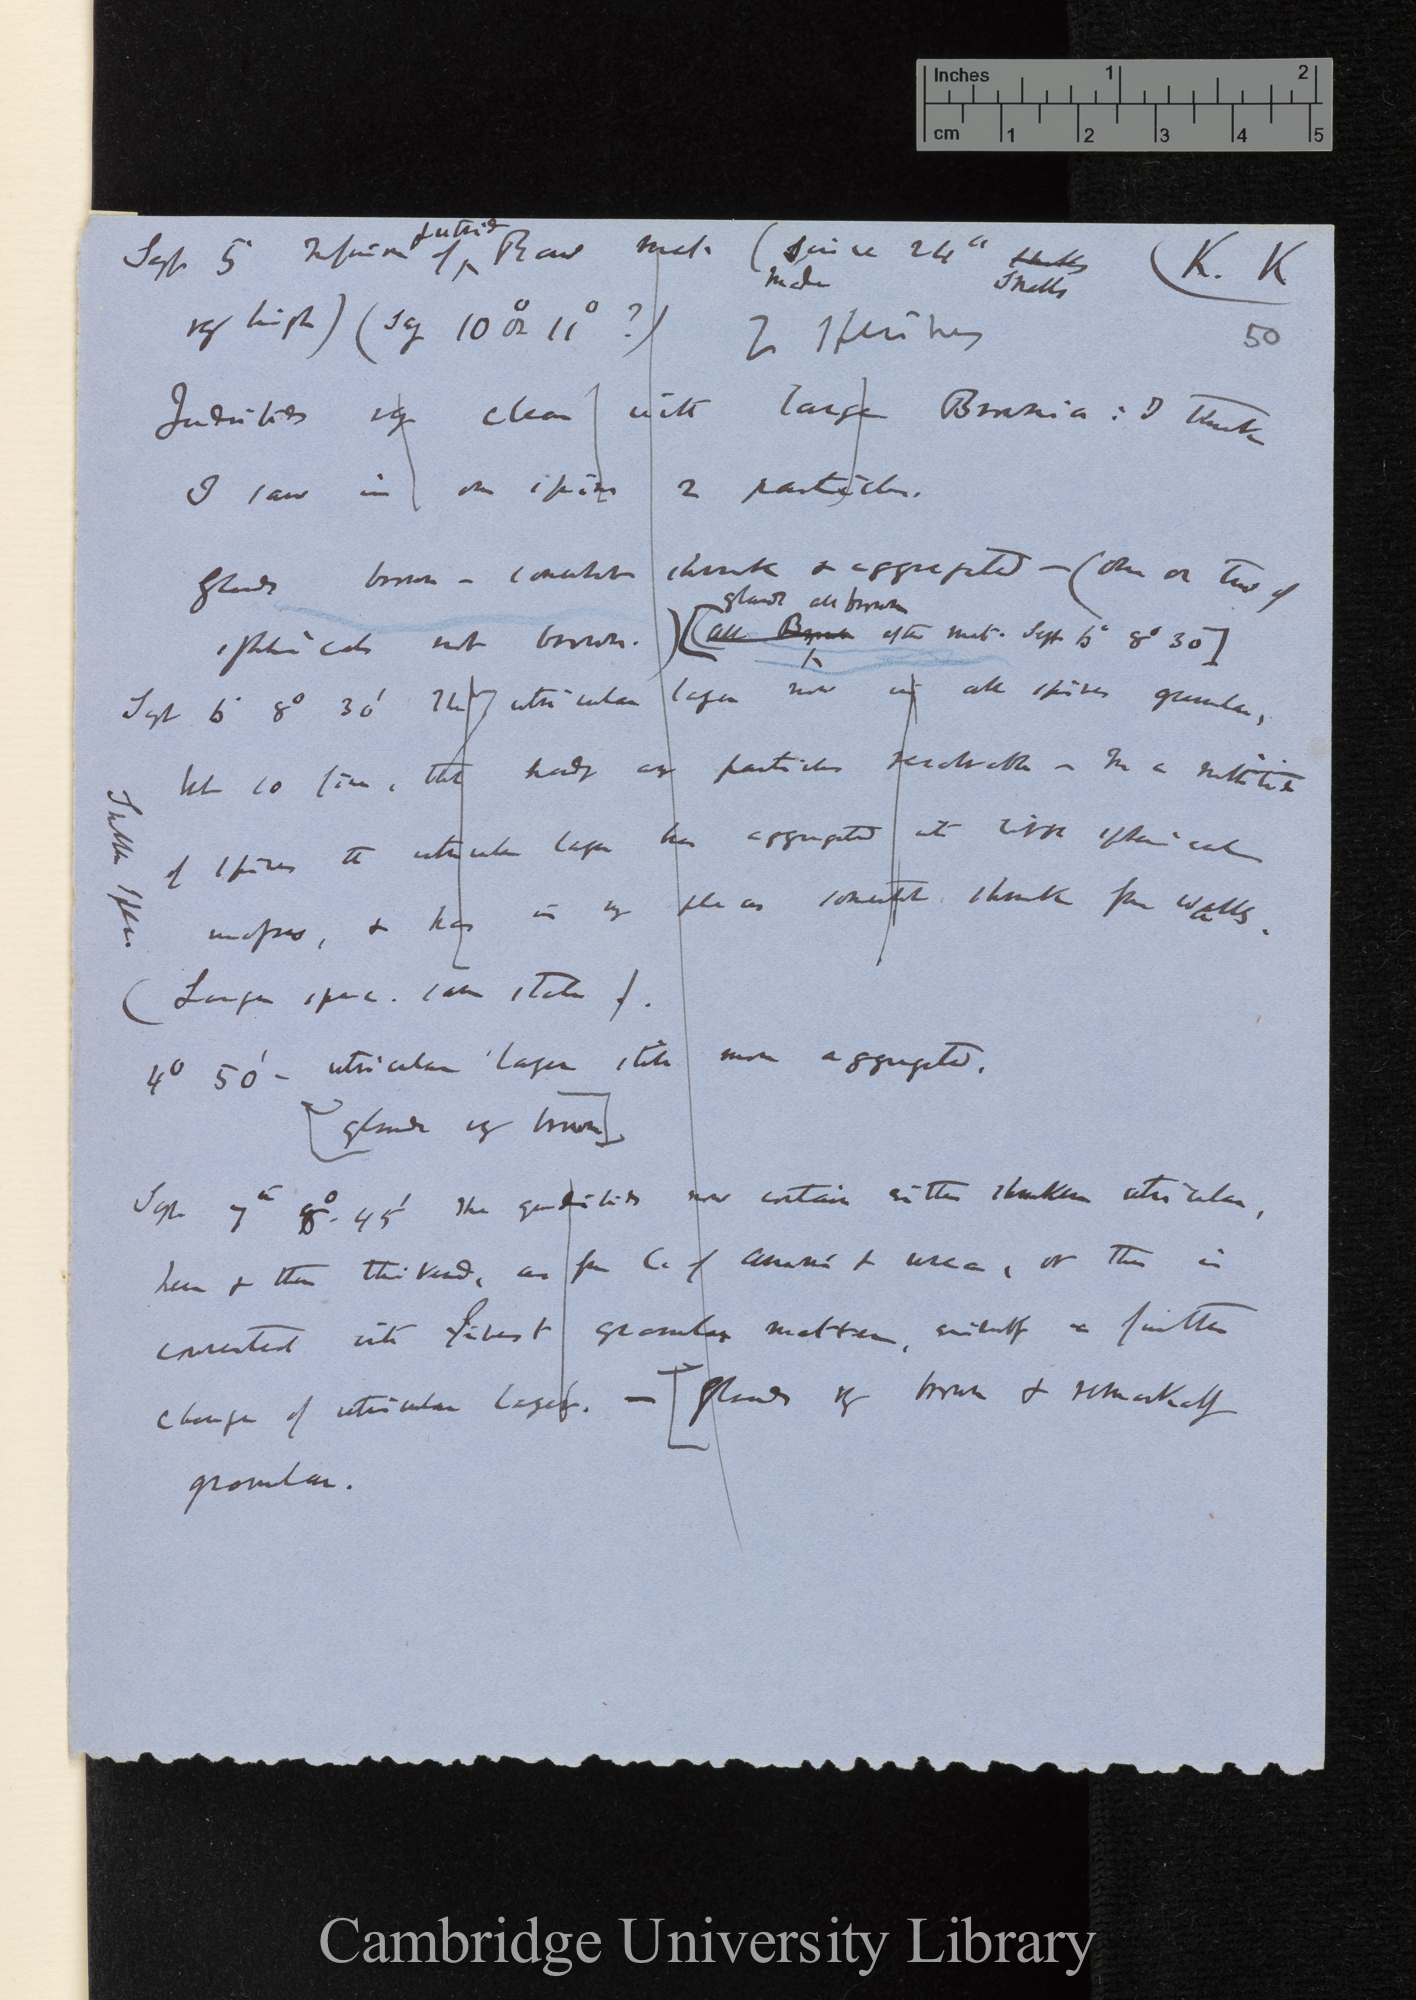 Inches 1 2
cm 1 2 3 4 5
Sept 5 Infusion of Raw meat (made since 24th smells (K. K
very high) (say 10° or 11°?) 7 spines
50
Quadrifids very clean with large Brownian: I think
I saw in one spine 2 particles.
Glands brown – somewhat shrunk & aggregated – (One or two of
glands all brown
spherical not brown.) [all Brown after meat. Sept 6 8° 30]
Sept 6 8° 30' The utricular layer now in all spines granular,
but so fine, that hardly any particles resolvable – In a multitude
of spines the utricular layer has aggregated into little spherical
masses, & has in many places somewhat shrunk from walls.
(Larger spec. same state).
4° 50' – utricular layer still more aggregated.
[glands very brown]
Sept 7th 8°. 45' The quadrifids now contain either shrunken utricular,
here & there thickened, as from C. of ammonia & urea, or this is
converted into finest granular matter, evidently a further
change of utricular layer. – [Glands very brown & remarkably
granular.
Cambridge University Library